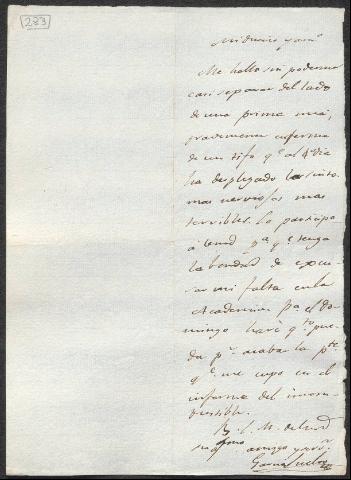 223
Mi dueño y am.º
Me hallo sin poderme
casi separar del lado
de una prima mia,
gravemente enferma
de un tifo q.e al 4º dia
ha desplegado los sinto-
mas nerviosos mas
terribles. Lo participo
á vmd p.a q.e tenga
la bondad de excu-
sar mi falta en la
Academia. P.a el do-
mingo haré q.to pue-
da p.r acabar la p.te
q.e me cupo en el
informe del incom-
bustible.
B. L. M. de vmd
su amigo y
Garcia Suelto